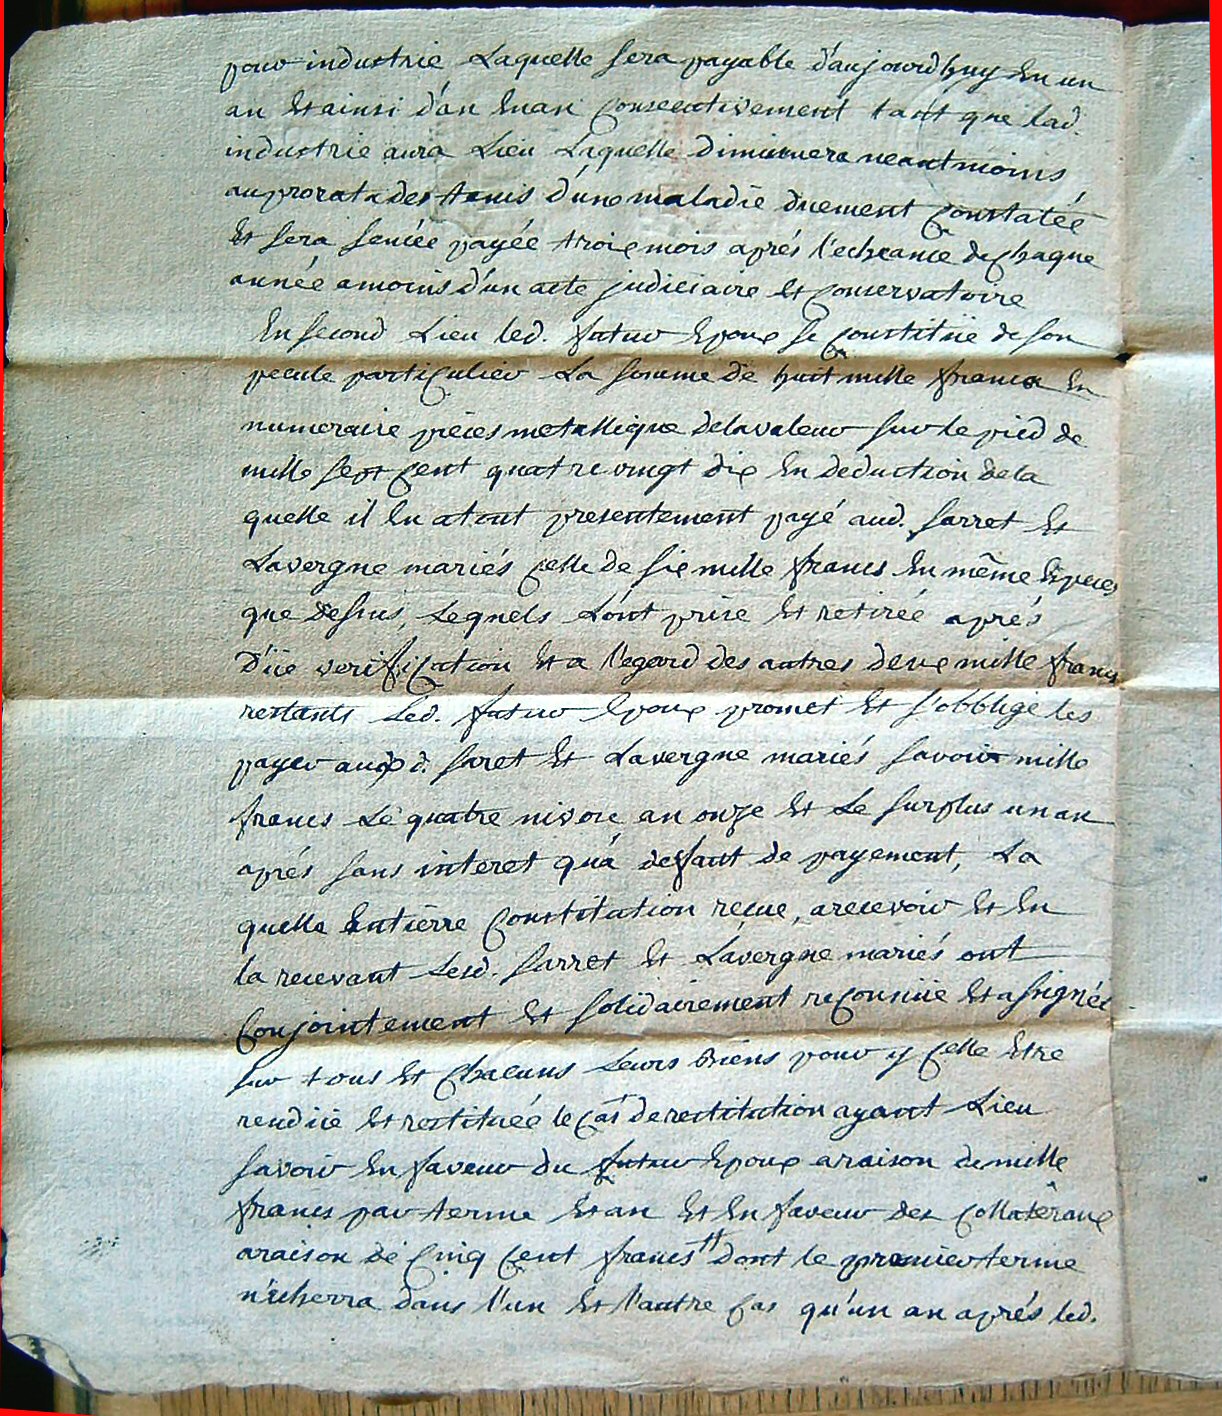 pour industrie Laquelle sera payable d'aujourdhuy En un
an Et ainsi d'an Enan Consecutivement tant que lad.
industrie aura Lieu Laquelle diminuera neantmoins
au prorata des tems d'une maladie duement Constatée
Et sera sencée payée trois mois aprés l'echeance de Chaque
année amoins d'un acte judiciaire Et Conservatoire
En second Lieu led. futur Epoux se Constitüe de son
pecule particulier La somme de huit mille francs En
numeraire pieces metallique delavaleur sur le pied de
mille sept Cent quatre vingt dix En deduction dela
quelle il En atout presentement payé aud. Sarret Et
Lavergne mariés Celle de six mille francs En même Especes
que dessus, Lequels L'ont prise Et retirée aprés
d'üe verification Et a l'egard des autres deux mille francs
restants Led. futur Epoux promet Et s'obblige les
payer aux d. Saret Et Lavergne mariés savoir mille
francs Le quatre nivose an onze Et Le surplus un an
aprés sans interet qu'a deffaut de payement, La
quelle Entiérre Constitution reçue, arecevoir Et En
la recevant Lesd. Sarret Et Lavergne mariés ont
Conjointement Et solidairement reconnüe Et assignée
sur tous Et Chacuns Leurs Biens pour y Celle Etre
rendüe Et restituée le Cas de restitution ayant Lieu
savoir En faveur du futur Epoux araison de mille
francs par terme Et an Et En faveur des Collatêraux
araison de Cinq Cent francs dont le premier terme
n'echerra dans l'un Et l'autre Cas qu'un an aprés led.